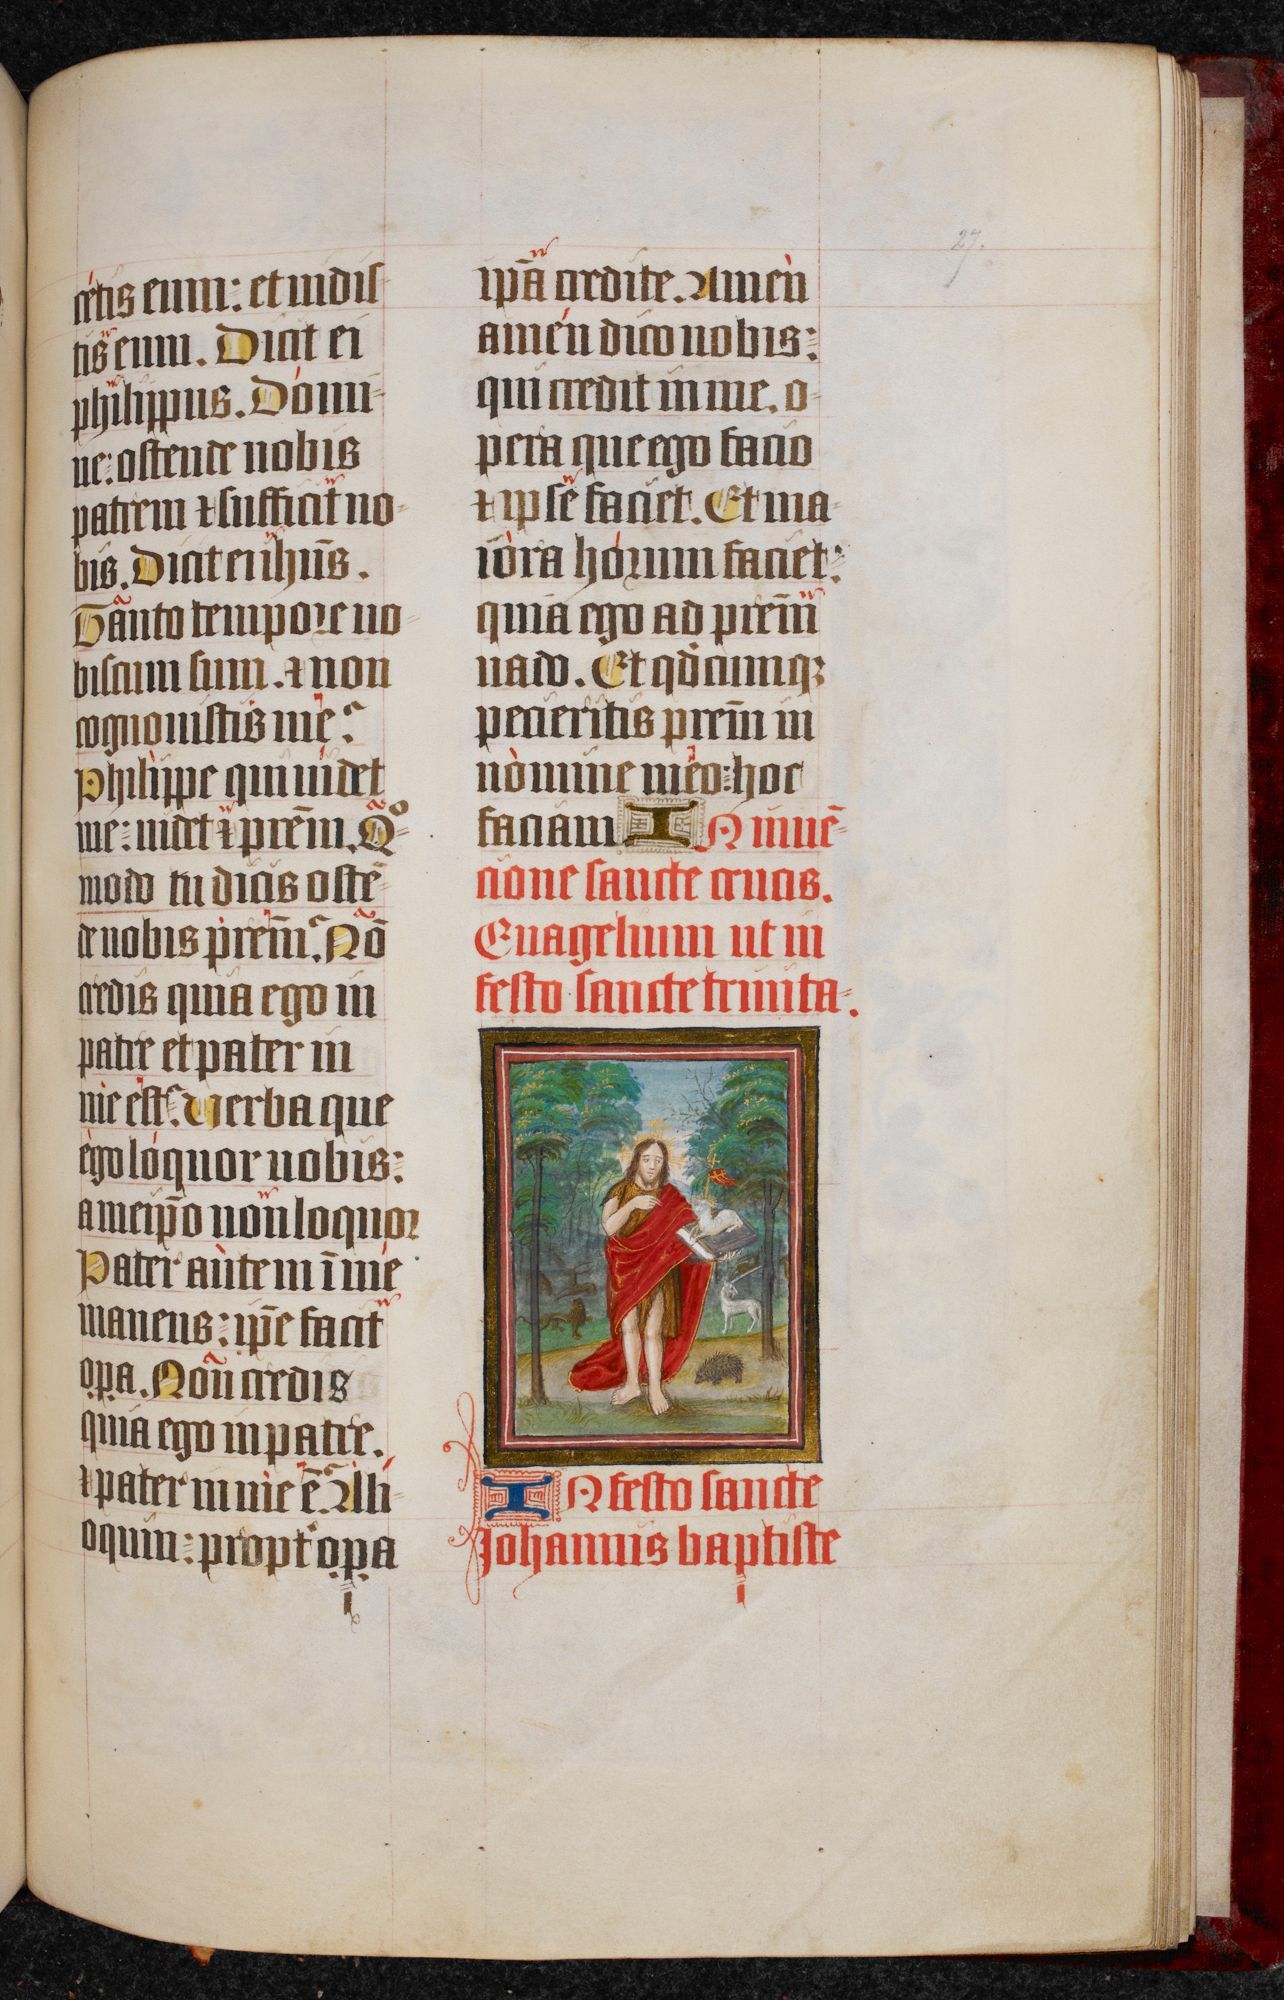 cetis eum: et uidis-
tis eum. Dicit ei
philippus. Domi-
ne: ostende nobis
patrem ⁊ sufficit no-
bis. Dicit ei ihūs.
Tanto tempore uo-
biscum sum. ⁊ non
cognouistis me?
Philippe qui uidet
me: uidet ⁊ prēm. Qᵒ-
modo tu dicis ostē-
de nobis prēm? Nō
credis quia ego in
patre et pater in
me est? Uerba que
ego loquor uobis:
a me ip̄o non loquor
Pater autem ī me
manens: ip̄e facit
oꝑa. Non credis
quia ego in patre.
⁊ pater in me ē? Ali-
oquin: propt̄ oꝑa
27.
ip̄a credite. Amen
amen dico uobis:
qui credit in me. o-
pera que ego facio
⁊ ipse faciet. Et ma-
iora horum faciet:
quia ego ad prēm
uado. Et qd̄cumqꝫ
pecieritis prēm in
nomine meo: hoc
faciam. IN inuē-
cione sancte crucis.
Euagelium ut in
festo sancte trinita-.
IN festo sancte
Johannis baptiste